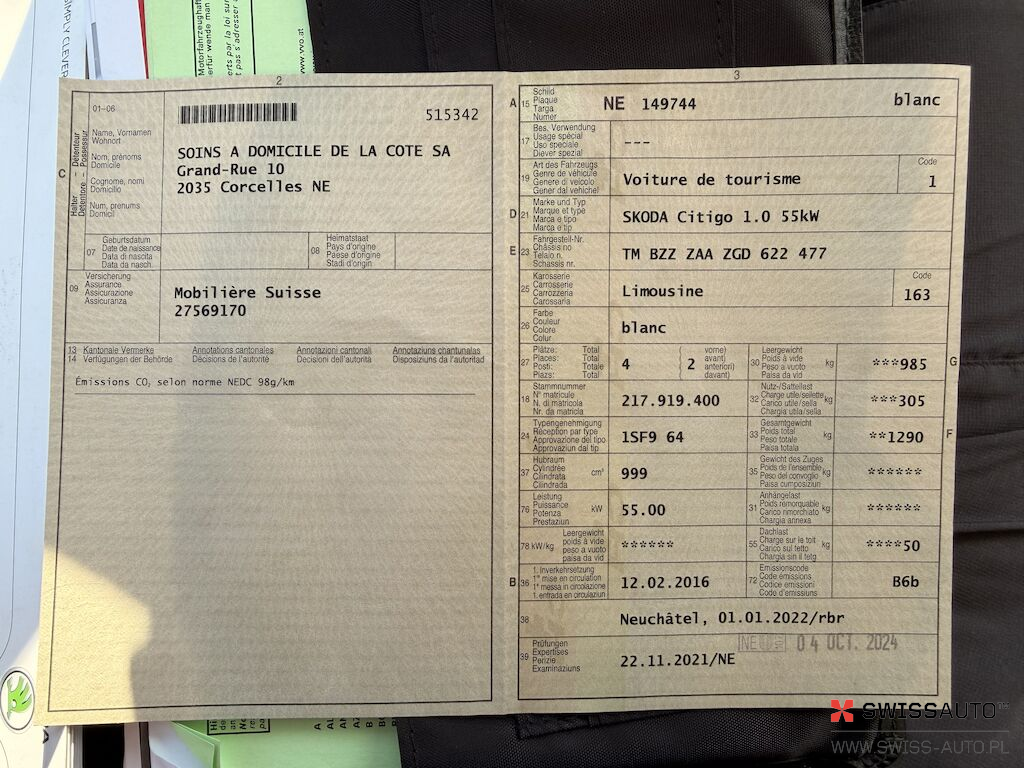 SIMPLY CLEVER
www.vvo.at
2
01-06
515342
C
Halter – Détenteur
Detentore – Possessur
Name, Vornamen
Wohnort
Nom, prénoms
Domicile
Cognome, nomi
Domicilio
Num, prenums
Domicil
SOINS A DOMICILE DE LA COTE SA
Grand-Rue 10
2035 Corcelles NE
07
Geburtsdatum
Date de naissance
Data di nascita
Data da nasch.
08
Heimatstaat
Pays d'origine
Paese d'origine
Stadi d'origin
09
Versicherung
Assurance
Assicurazione
Assicuranza
Mobilière Suisse
27569170
13 Kantonale Vermerke Annotations cantonales Annotazioni cantonali Annotaziuns chantunalas
14 Verfügungen der Behörde Décisions de l'autorité Decisioni dell'autorità Disposiziuns da l'autoritad
Émissions CO₂ selon norme NEDC 98g/km
3
A 15
Schild
Plaque
Targa
Numer
NE 149744 blanc
17
Bes. Verwendung
Usage spécial
Uso speciale
Diever spezial
---
19
Art des Fahrzeugs
Genre de véhicule
Genere di veicolo
Gener dal vehichel
Voiture de tourisme
Code
1
D 21
Marke und Typ
Marque et type
Marca e tipo
Marca e tip
SKODA Citigo 1.0 55kW
E 23
Fahrgestell-Nr.
Châssis no
Telaio n.
Schassis nr.
TM BZZ ZAA ZGD 622 477
25
Karosserie
Carrosserie
Carrozzeria
Carossaria
Limousine
Code
163
26
Farbe
Couleur
Colore
Colur
blanc
27
Plätze: Total
Places: Total
Posti: Totale
Plazs: Total
4
2
vorne)
avant)
anteriori)
davant)
30
Leergewicht
Poids à vide
Peso a vuoto
Paisa da vid
kg
***985
G
18
Stammnummer
N° matricule
N. di matricola
Nr. da matricla
217.919.400
32
Nutz-/Sattellast
Charge utile/sellette
Carico utile/sella
Chargia utila/sella
kg
***305
24
Typengenehmigung
Réception par type
Approvazione del tipo
Approvaziun dal tip
1SF9 64
33
Gesamtgewicht
Poids total
Peso totale
Paisa totala
kg
**1290
F
37
Hubraum
Cylindrée
Cilindrata
Cilindrada
cm³
999
35
Gewicht des Zuges
Poids de l'ensemble
Peso del convoglio
Paisa cumposiziun
kg
******
76
Leistung
Puissance
Potenza
Prestaziun
kW
55.00
31
Anhängelast
Poids remorquable
Carico rimorchiato
Chargia annexa
kg
******
78 kW/kg
Leergewicht
poids à vide
peso a vuoto
paisa da vid
******
55
Dachlast
Charge sur le toit
Carico sul tetto
Chargia sin il tetg
kg
****50
B 36
1. Inverkehrsetzung
1re mise en circulation
1a messa in circolazione
1. entrada en circulaziun
12.02.2016
72
Emissionscode
Code émissions
Codice emissioni
Code d'emissiuns
B6b
38
Neuchâtel, 01.01.2022/rbr
39
Prüfungen
Expertises
Perizie
Examinaziuns
22.11.2021/NE
NE
04 OCT. 2024
SWISSAUTO
WWW.SWISS-AUTO.PL